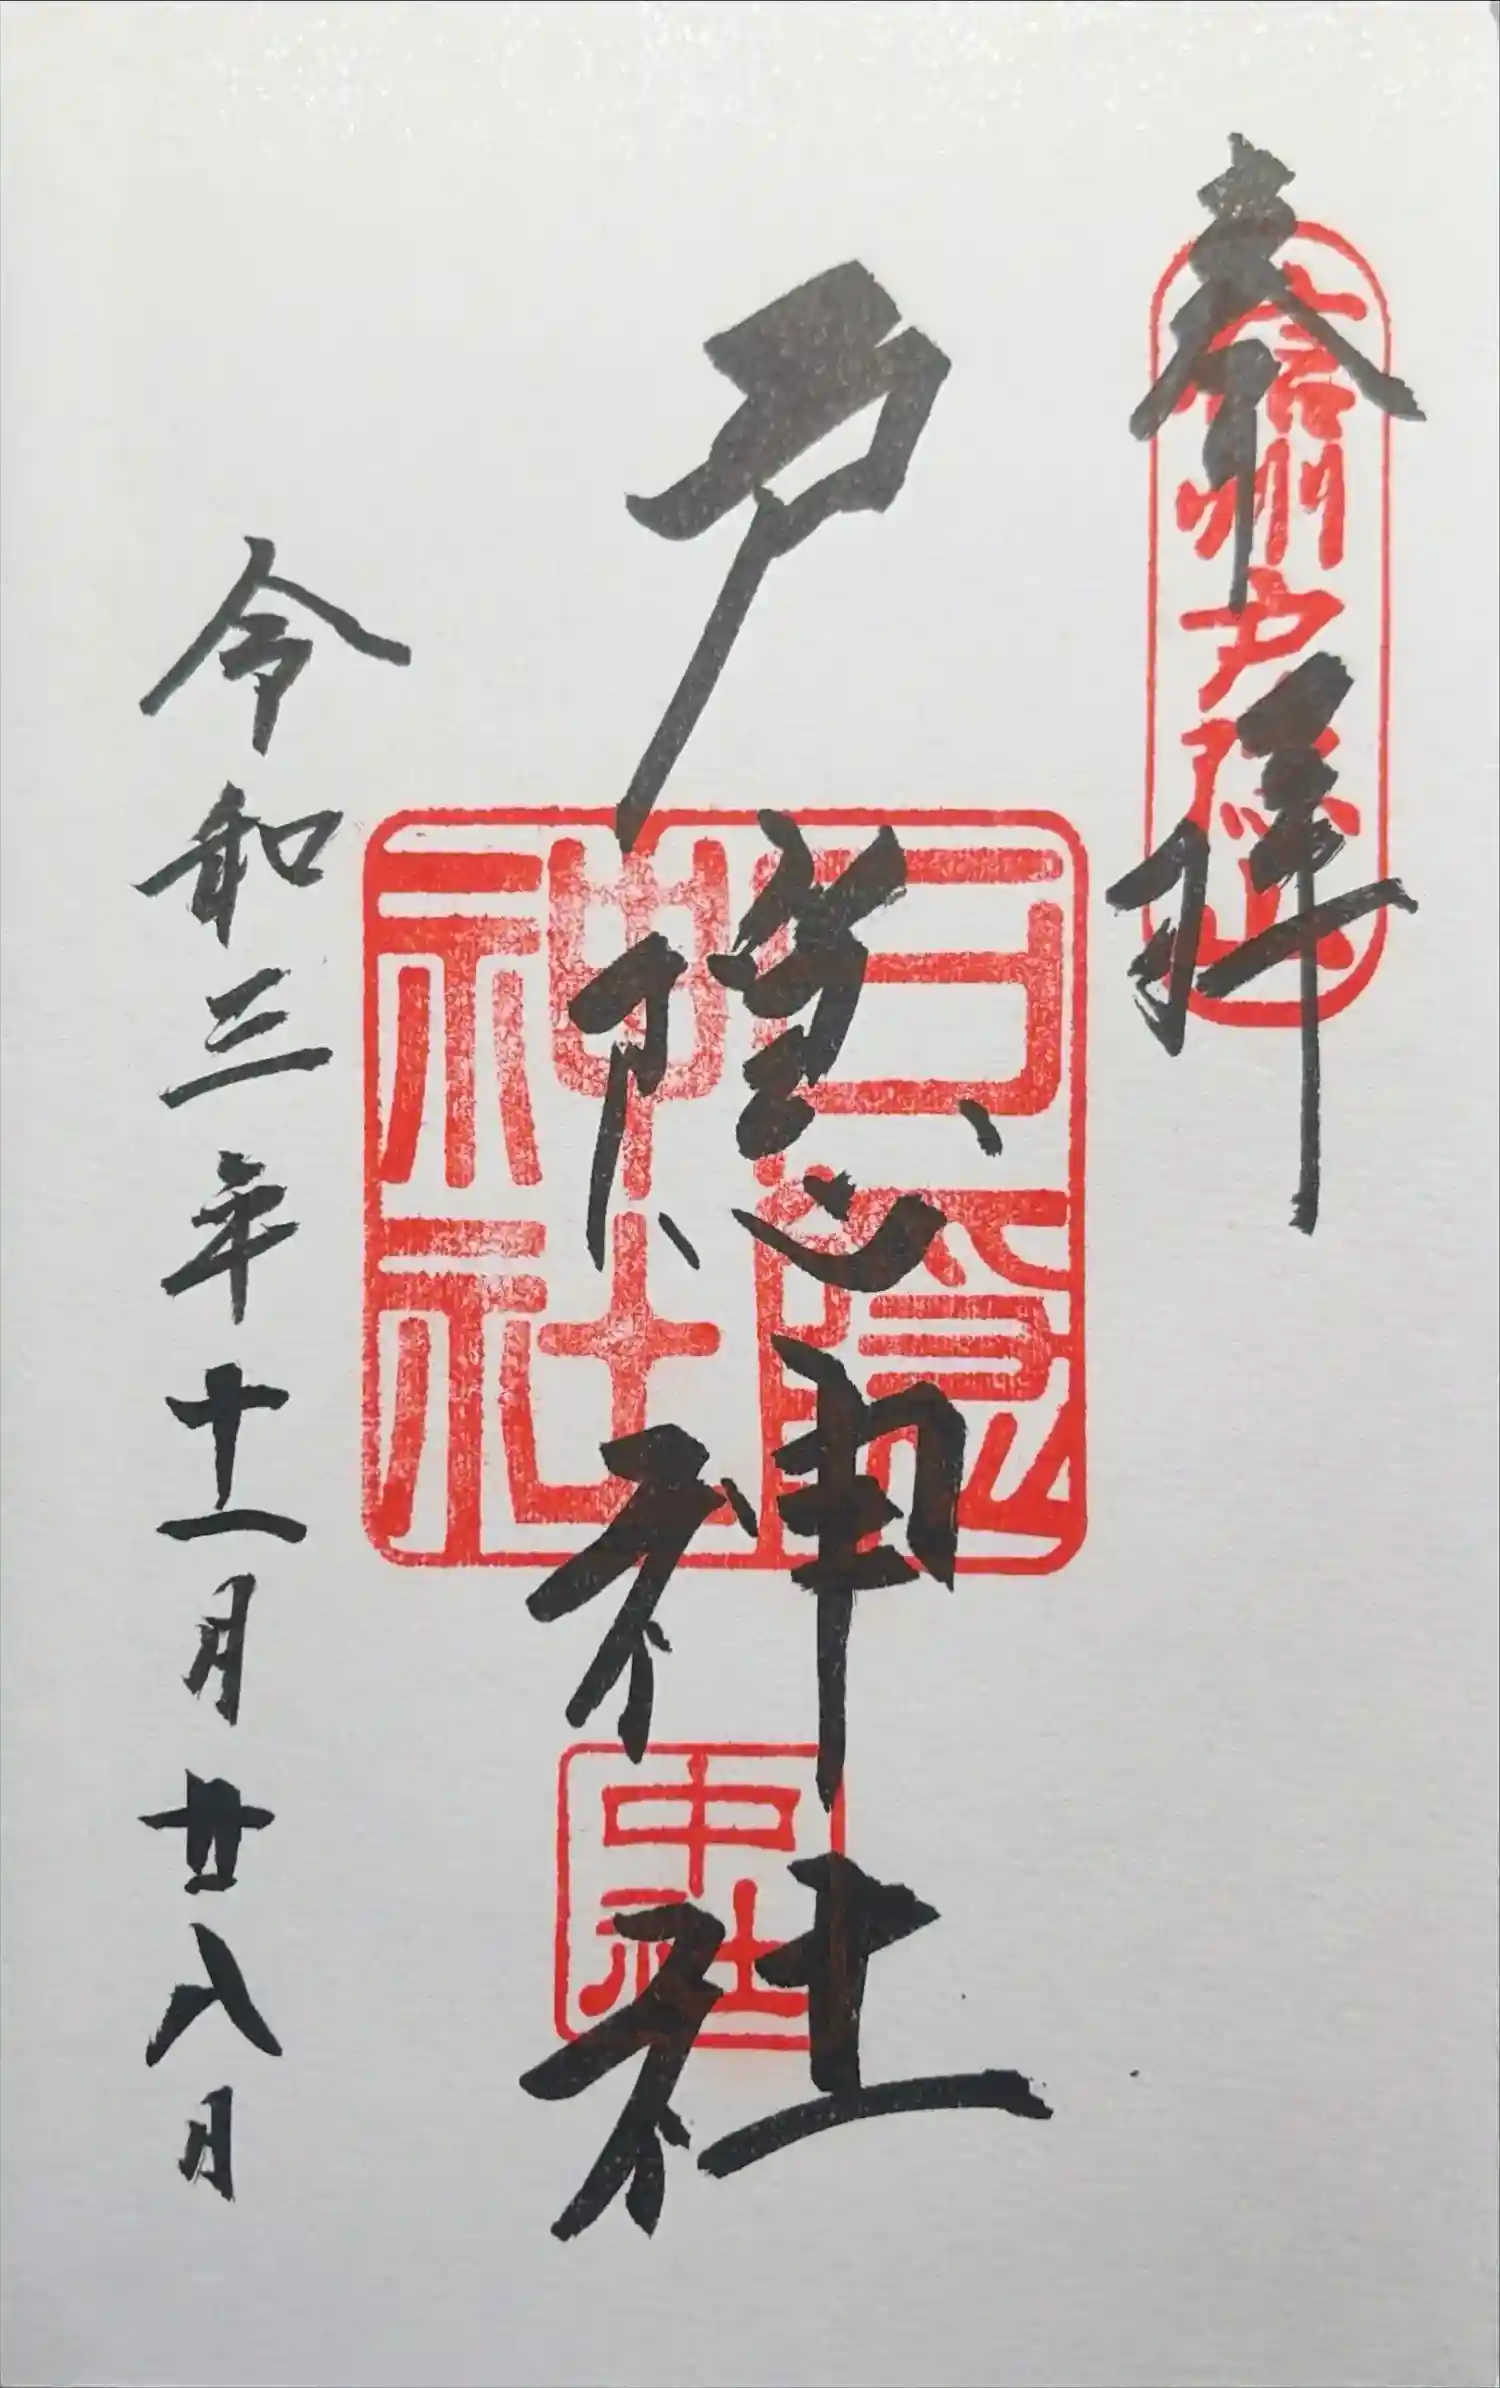 奉拝
信州戸隠山
戸隠神社
戸隠
神社
中社
令和三年十一月廿八日